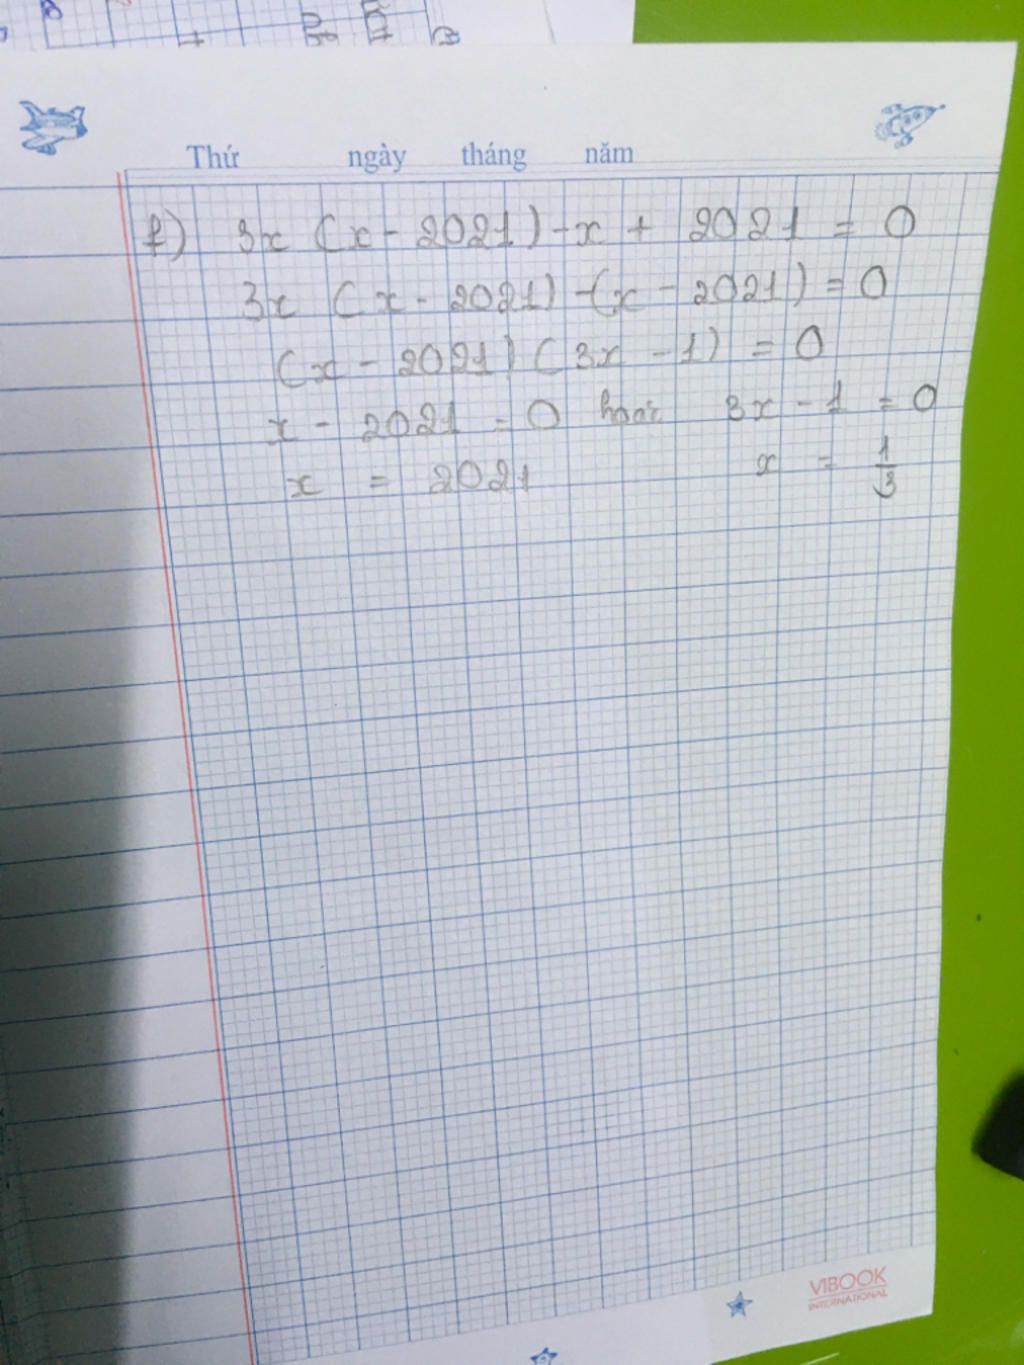 Thứ ngày tháng năm
f) 3x (x - 2021) - x + 2021 = 0
3x (x - 2021) - (x - 2021) = 0
(x - 2021) (3x - 1) = 0
x - 2021 = 0 hoặc 3x - 1 = 0
x = 2021 x = 1/3
VIBOOK
INTERNATIONAL